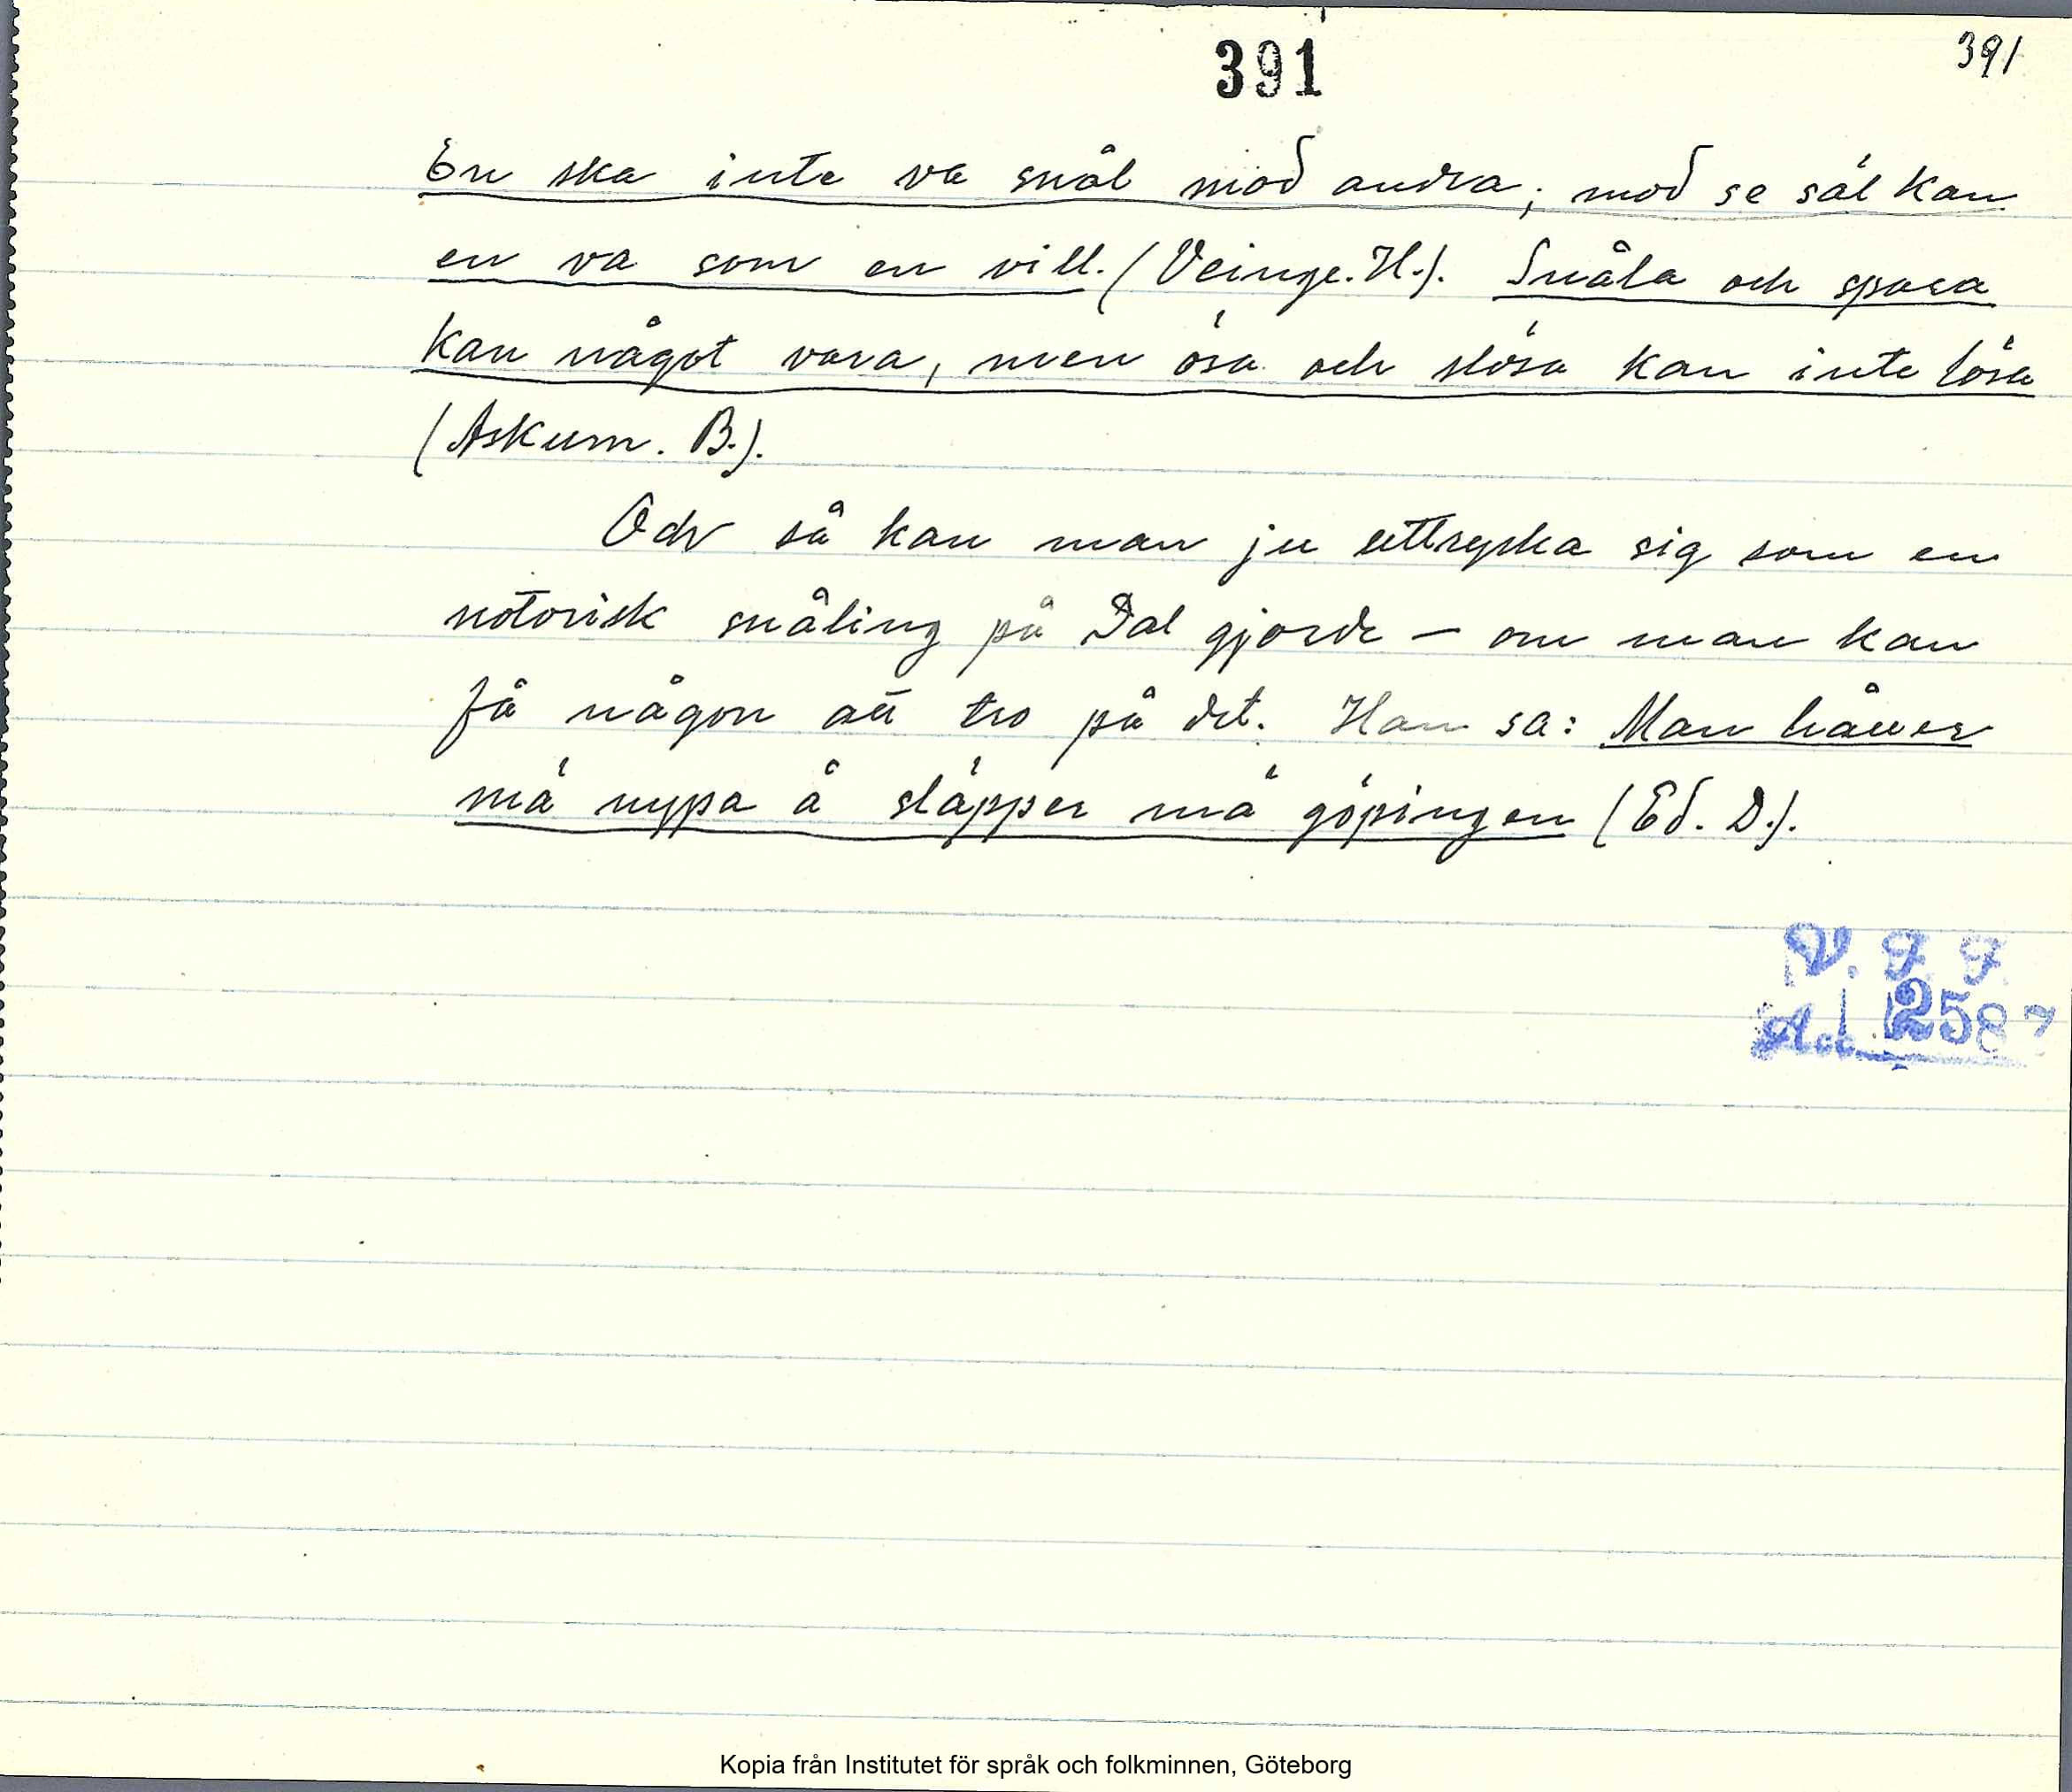 391
391
En ska inte va snål mod andra; mod se säl kan
en va som en vill. (Veinge. H.). Snåla och spara
kan något vara, men ösa och slösa kan inte lösa
(Askum. B.).
Och så kan man ju uttrycka sig som en
notorisk snåling på Dal gjorde – om man kan
få någon att tro på det. Han sa: Man
mä nypa å släpper mä göpingen (Ed. D.).
V. G. G.
Acc. 2587
Kopia från Institutet för språk och folkminnen, Göteborg